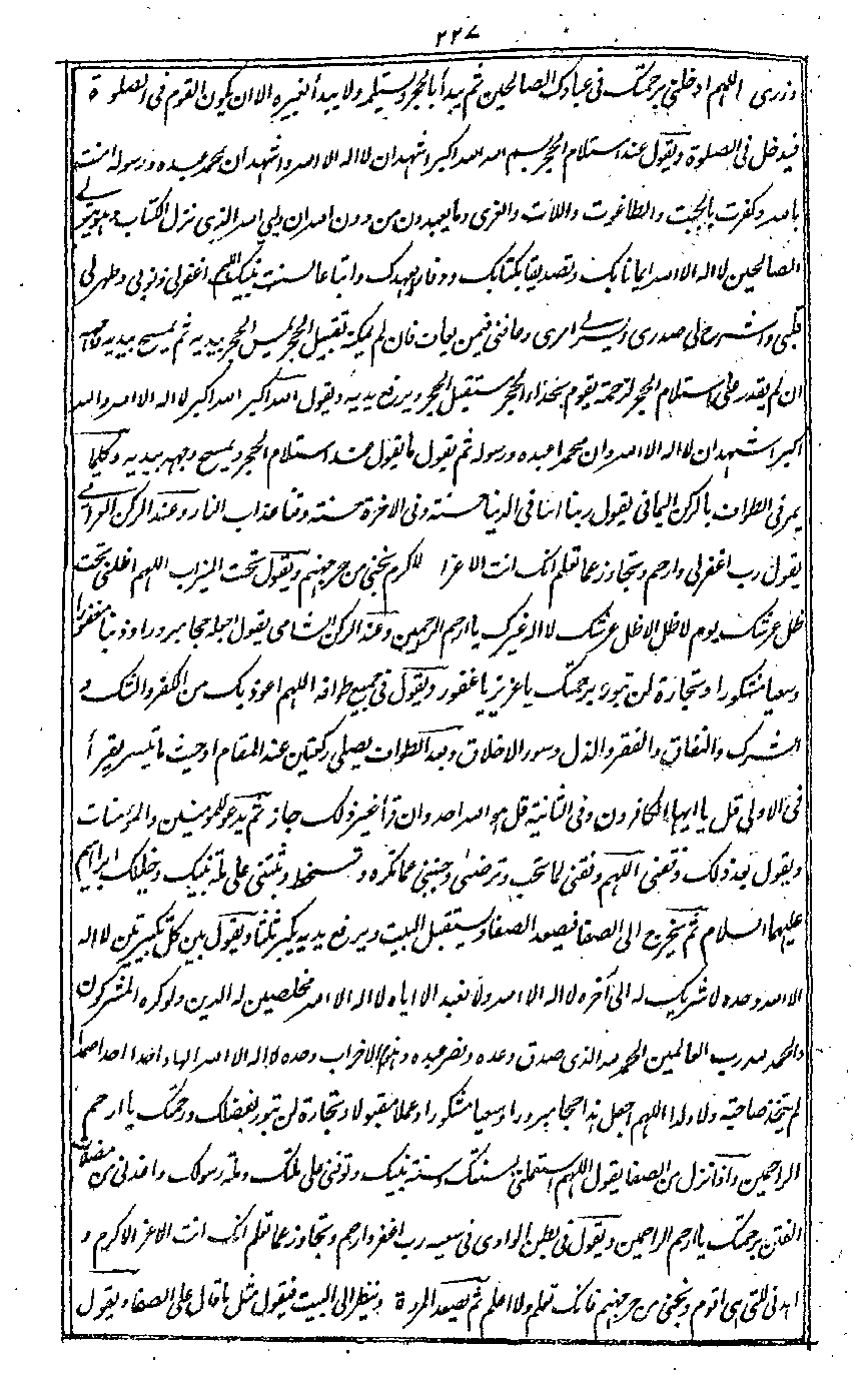 ۲۲۷
وزری اللهم ادخلنی برحمتک فی عبادک الصالحین ثم یبدأ بالحجر ویستلمه ولا یبدأ بغیره الا ان یکون القوم فی الصلوة
فیدخل فی الصلوة ویقول عند استلام الحجر بسم الله الله اکبر اشهد ان لا اله الا الله واشهد ان محمد عبده ورسوله امنت
بالله وکفرت بالجبت والطاغوت واللات والعزی وما یعبدون من دون الله ان ولیی الله الذی نزل الکتاب وهو یتولی
الصالحین لا اله الا الله ایمانا بک وتصدیقا بکتابک ووفاء بعهدک واتباعا لسنت نبیک اللهم اغفرلی ذنوبی وطهر لی
قلبی واشرح لی صدری ویسر لی امری وعافنی فیمن عافیت فان لم یمکنه تقبیل الحجر لمس الحجر بیدیه ثم یمسح بیدیه وجهه
ان لم یقدر علی استلام الحجر لزحمة یقوم بحذاء الحجر مستقبل الحجر ویرفع یدیه ویقول الله اکبر الله اکبر لا اله الا الله والله
اکبر اشهد ان لا اله الا الله وان محمدا عبده ورسوله ثم یقول ما یقول عند استلام الحجر ویمسح وجهه بیدیه وکلما
یمر فی الطواف بالرکن الیمانی یقول ربنا اتنا فی الدنیا حسنة وفی الاخرة حسنة وقنا عذاب النار وعند الرکن العراقی
یقول رب اغفرلی وارحم وتجاوز عما تعلم انک انت الاعز الاکرم نجنی من حر جهنم ویقول تحت المیزاب اللهم اظلنی تحت
ظل عرشک یوم لا ظل الا ظل عرشک لا اله غیرک یا ارحم الراحمین وعند الرکن الشامی یقول اجعله حجا مبرورا وذنبا مغفورا
وسعیا مشکورا وتجارة لن تبور برحمتک یا عزیز یا غفور ویقول فی جمیع طوافه اللهم اعوذ بک من الکفر والشک و
الشرک والنفاق والفقر والذل وسور الاخلاق وبعد الطواف یصلی رکعتین عند المقام او حیث ما تیسر یقرأ
فی الاولی قل یا ایها الکافرون وفی الثانیة قل هو الله احد وان قرأ غیر ذلک جاز ثم یدعو للمومنین والمؤمنات
ویقول بعد ذلک وقنعنی اللهم وفقنی لما تحب وترضی وجنبنی عما تکره وتسخط وثبتنی علی ملة نبیک وخلیلک ابراهیم
علیهما السلام ثم یخرج الی الصفا فیصعد الصفا ویستقبل البیت ویرفع یدیه یکبر ثلثا ویقول بین کل تکبیرتین لا اله
الا الله وحده لا شریک له الی آخره لا اله الا الله ولا نعبد الا ایاه لا اله الا الله مخلصین له الدین ولو کره المشرکون
والحمد لله رب العالمین الحمد لله الذی صدق وعده ونصر عبده وهزم الاحزاب وحده لا اله الا الله الها واحدا احدا صمدا
لم یتخذ صاحبة ولا ولدا اللهم اجعل هذا حجا مبرورا وسعیا مشکورا وعملا مقبولا وتجارة لن تبور بفضلک ورحمتک یا ارحم
الراحمین واذا نزل من الصفا یقول اللهم استعملنی بسنتک وسنة نبیک وتوفنی علی ملتک وملة رسولک واعذنی من مضلات
الفتن برحمتک یا ارحم الراحمین ویقول فی بطن الوادی فی سعیه رب اغفر وارحم وتجاوز عما تعلم انک انت الاعز الاکرم و
اهدنی للتی هی اقوم ونجنی من حر جهنم فانک تعلم ولا اعلم ثم یصعد المروة وینظر الی البیت فیقول مثل ما قال علی الصفا ویقول